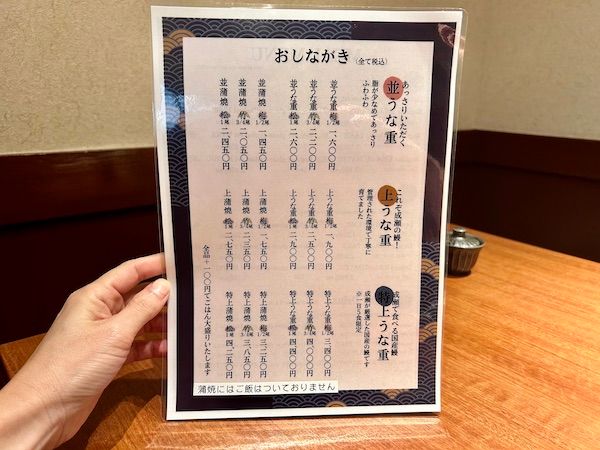 おしながき（全て税込）
あっさりいただく
並うな重
脂が少なめであっさり
ふわふわ
並うな重 梅 1/2尾 一、六〇〇円
並うな重 竹 3/4尾 二、二〇〇円
並うな重 松 1尾 二、六〇〇円
並蒲焼 梅 1/2尾 一、四五〇円
並蒲焼 竹 3/4尾 二、〇五〇円
並蒲焼 松 1尾 二、四五〇円
これぞ成瀬の鰻！
上うな重
管理された環境で丁寧に
育てました
上うな重 梅 1/2尾 一、九〇〇円
上うな重 竹 3/4尾 二、五〇〇円
上うな重 松 1尾 二、九〇〇円
上蒲焼 梅 1/2尾 一、七五〇円
上蒲焼 竹 3/4尾 二、三五〇円
上蒲焼 松 1尾 二、七五〇円
成瀬で食べる国産鰻
特上うな重
成瀬が厳選した国産の鰻です
※一日5食限定
特上うな重 梅 1/2尾 三、四〇〇円
特上うな重 竹 3/4尾 四、〇〇〇円
特上うな重 松 1尾 四、四〇〇円
特上蒲焼 梅 1/2尾 三、二五〇円
特上蒲焼 竹 3/4尾 三、八五〇円
特上蒲焼 松 1尾 四、二五〇円
全品＋一〇〇円でごはん大盛りいたします
蒲焼にはご飯はついておりません